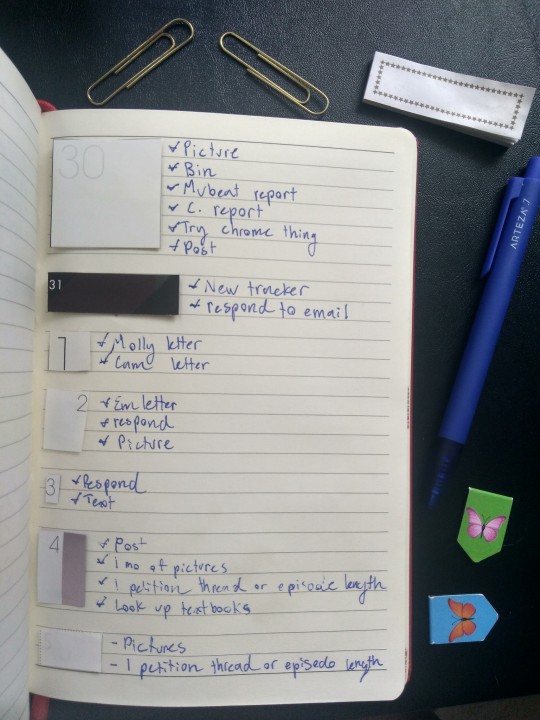 30
Picture
Bin
Mvbeat report
C. report
Try chrome thing
Post
31
New tracker
respond to email
1
Molly letter
Cam letter
2
Em letter
respond
Picture
3
Respond
Text
4
Post
1 mo of pictures
1 petition thread or episode length
Look up textbooks
5
- Pictures
- 1 petition thread or episode length
ARTEZA